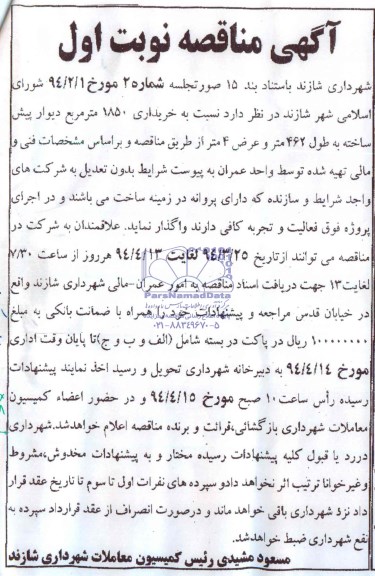 آگهی مناقصه نوبت اول
شهرداری شازند باستناد بند ۱۵ صورتجلسه شماره۲ مورخ۹۴/۲/۱ شورای
اسلامی شهر شازند در نظر دارد نسبت به خریداری ۱۸۵۰ مترمربع دیوار پیش
ساخته به طول ۴۶۲متر و عرض ۴ متر از طریق مناقصه و براساس مشخصات فنی و
مالی تهیه شده توسط واحد عمران به پیوست شرایط بدون تعدیل به شرکت های
واجد شرایط و سازنده که دارای پروانه در زمینه ساخت می باشند و در اجرای
پروژه فوق فعالیت و تجربه کافی دارند واگذار نماید. علاقمندان به شرکت در
مناقصه می توانند ازتاریخ ۹۴/۳/۲۵ لغایت ۹۴/۴/۱۳ هرروز از ساعت ۷/۳۰
لغایت۱۳ جهت دریافت اسناد مناقصه به امور عمران-مالی شهرداری شازند واقع
ParsNamadData
در خیابان قدس مراجعه و پیشنهادات خود را همراه با ضمانت بانکی به مبلغ
۰۲۱-۸۸۳۴۹۶۷۰-۵
۱۰۰۰۰۰۰۰۰ ریال در پاکت در بسته شامل (الف و ب و ج)تا پایان وقت اداری
مورخ ۹۴/۴/۱۴ به دبیرخانه شهرداری تحویل و رسید اخذ نمایند پیشنهادات
رسیده رأس ساعت۱۰ صبح مورخ ۹۴/۴/۱۵ و در حضور اعضاء کمیسیون
معاملات شهرداری بازگشائی،قرائت و برنده مناقصه اعلام خواهدشد.شهرداری
دررد یا قبول کلیه پیشنهادات رسیده مختار و به پیشنهادات مخدوش،مشروط
وغیرخوانا ترتیب اثر نخواهد دادو سپرده های نفرات اول تا سوم تا تاریخ عقد قرار
داد نزد شهرداری باقی خواهد ماند و درصورت انصراف از عقد قرارداد سپرده به
نفع شهرداری ضبط خواهدشد.
مسعود مشیدی رئیس کمیسیون معاملات شهرداری شازند